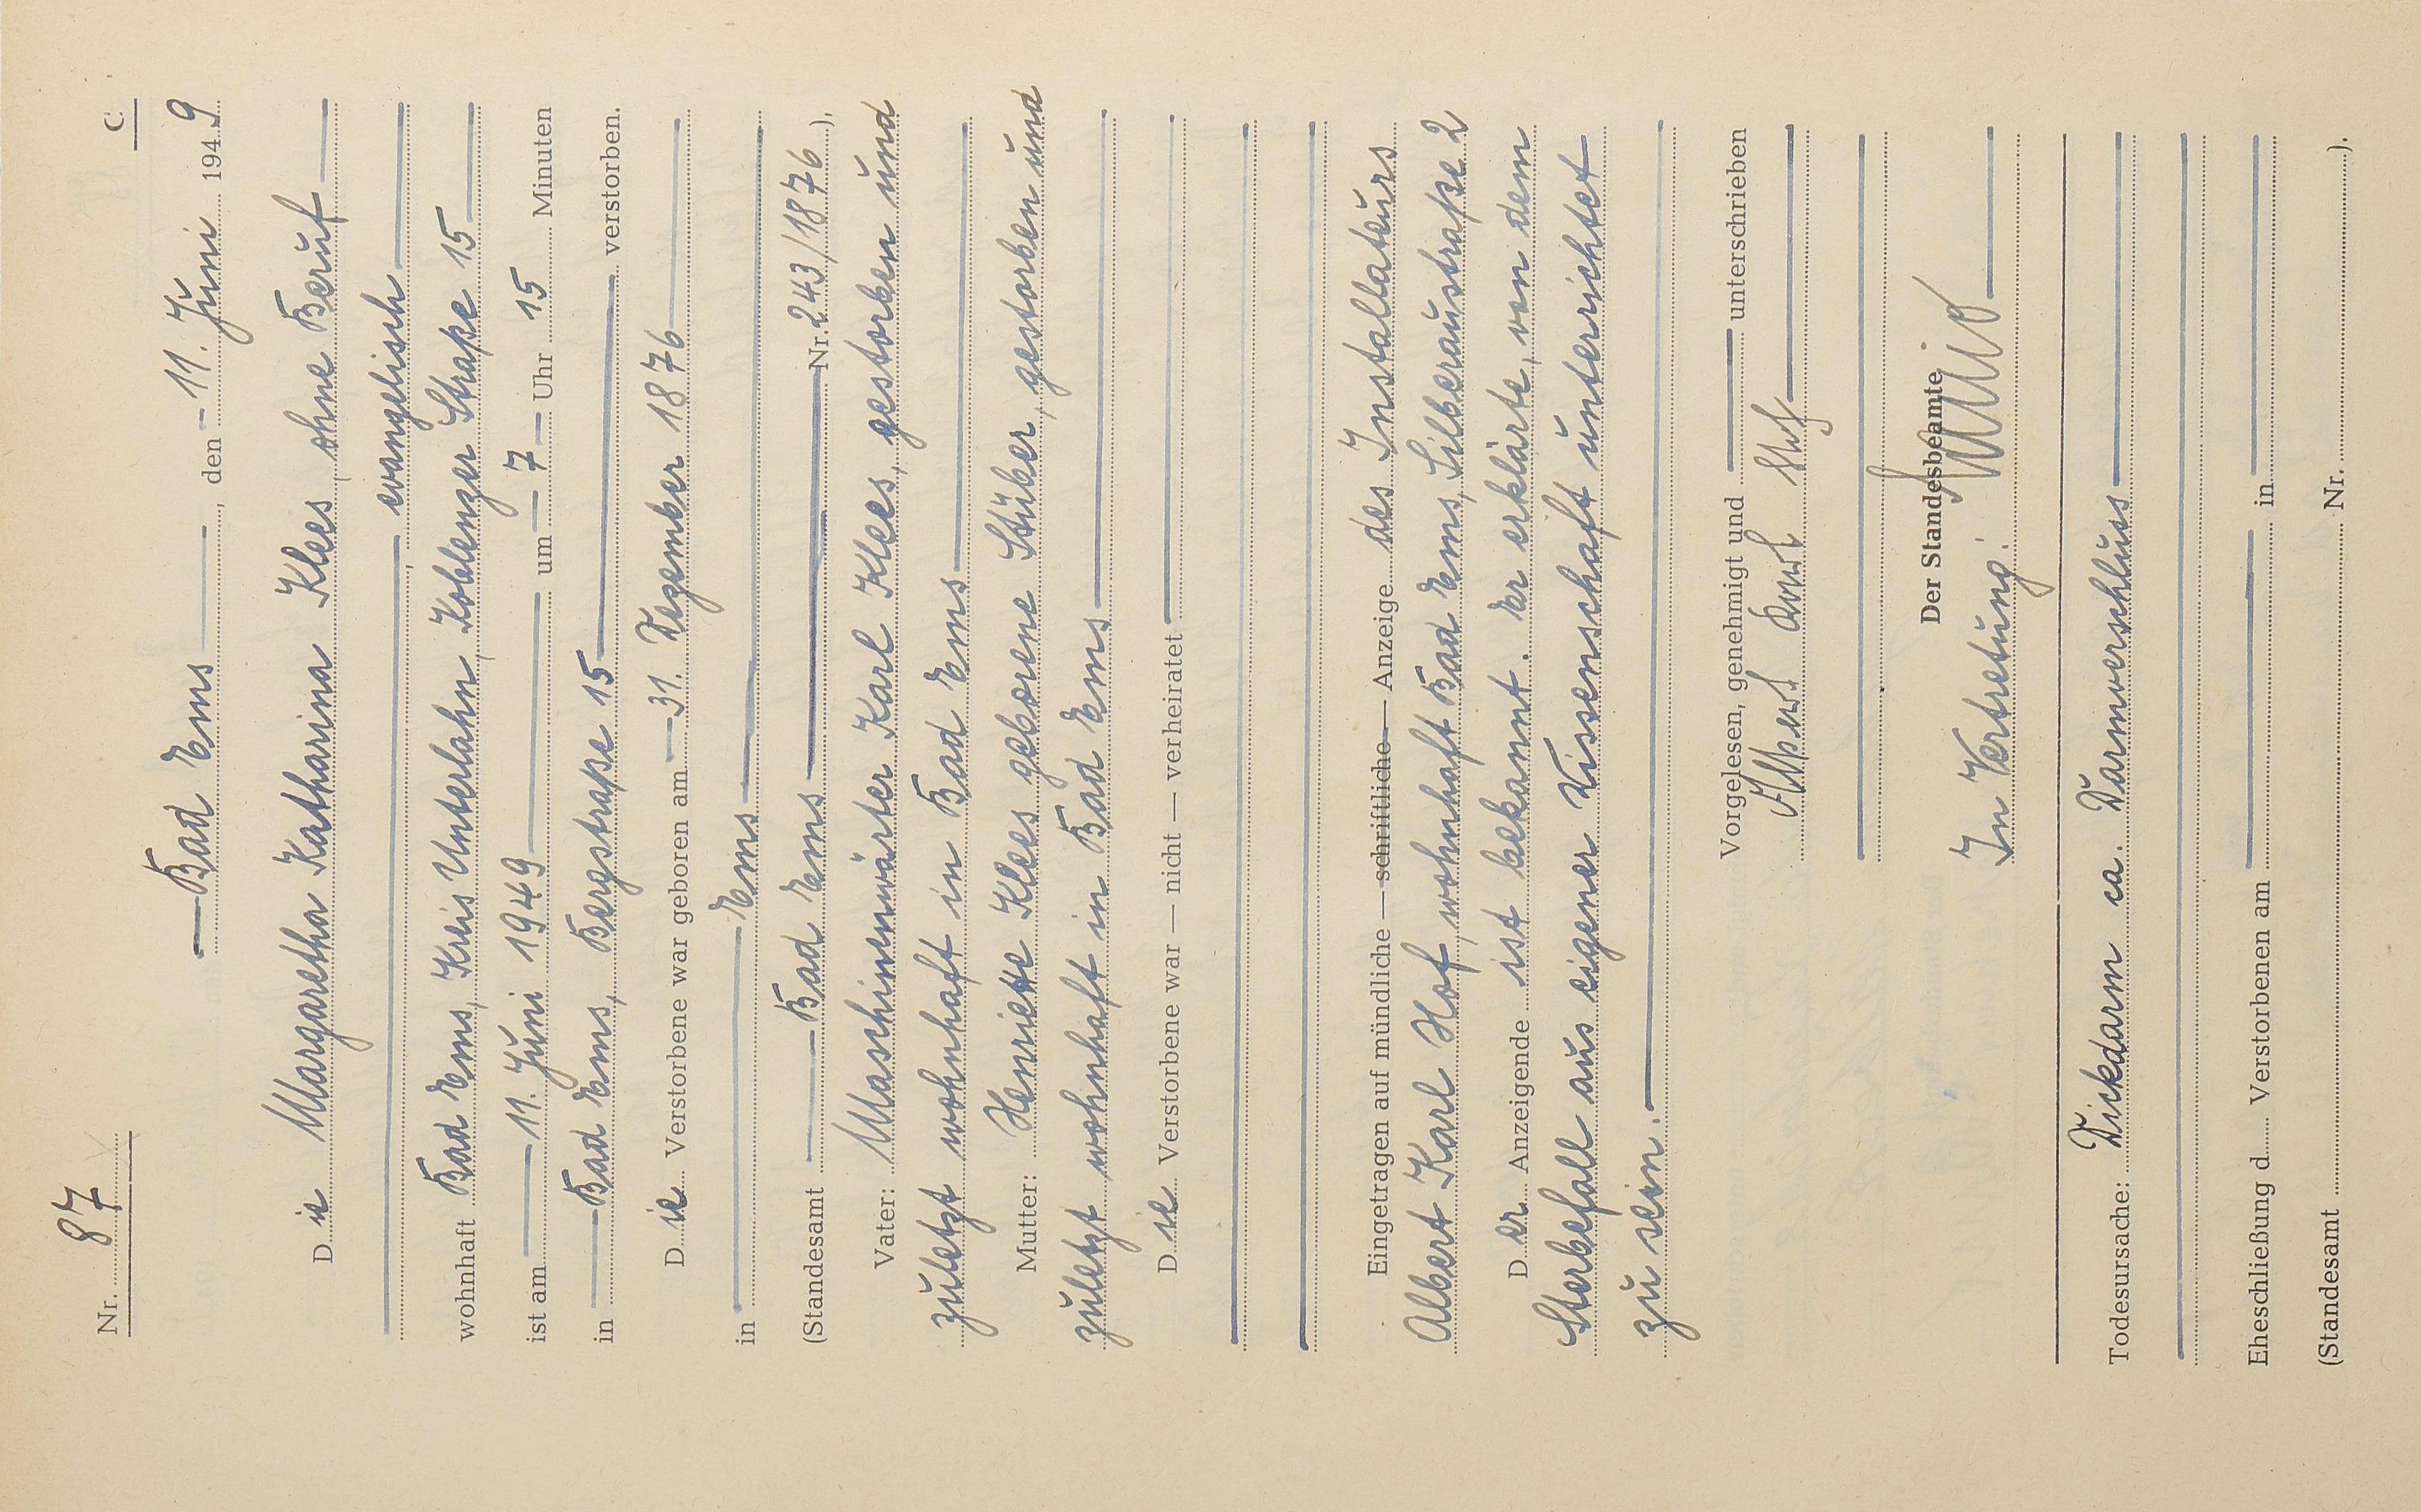 Nr. 87
C
Bad Ems, den 11. Juni 1949
Die Margaretha Katharina Klees, ohne Beruf
, evangelisch
wohnhaft Bad Ems, Kreis Unterlahn, Koblenzer Straße 15
ist am 11. Juni 1949 um 7 Uhr 15 Minuten
in Bad Ems, Bergstraße 15 verstorben.
Die Verstorbene war geboren am 31. Dezember 1876
in Ems
(Standesamt Bad Ems Nr. 243/1876),
Vater: Maschinenwärter Karl Klees, gestorben und
zuletzt wohnhaft in Bad Ems
Mutter: Henriette Klees geborene Stüber, gestorben und
zuletzt wohnhaft in Bad Ems
Die Verstorbene war — nicht — verheiratet
Eingetragen auf mündliche — schriftliche — Anzeige des Installateurs
Albert Karl Hof, wohnhaft Bad Ems, Silberaustraße 2
Der Anzeigende ist bekannt. Er erklärte, von dem
Sterbefall aus eigener Wissenschaft unterrichtet
zu sein.
Vorgelesen, genehmigt und unterschrieben
Albert Karl Hof
Der Standesbeamte
In Vertretung:
Todesursache: Dickdarm ca. Darmverschluss
Eheschließung d Verstorbenen am in
(Standesamt Nr. ).